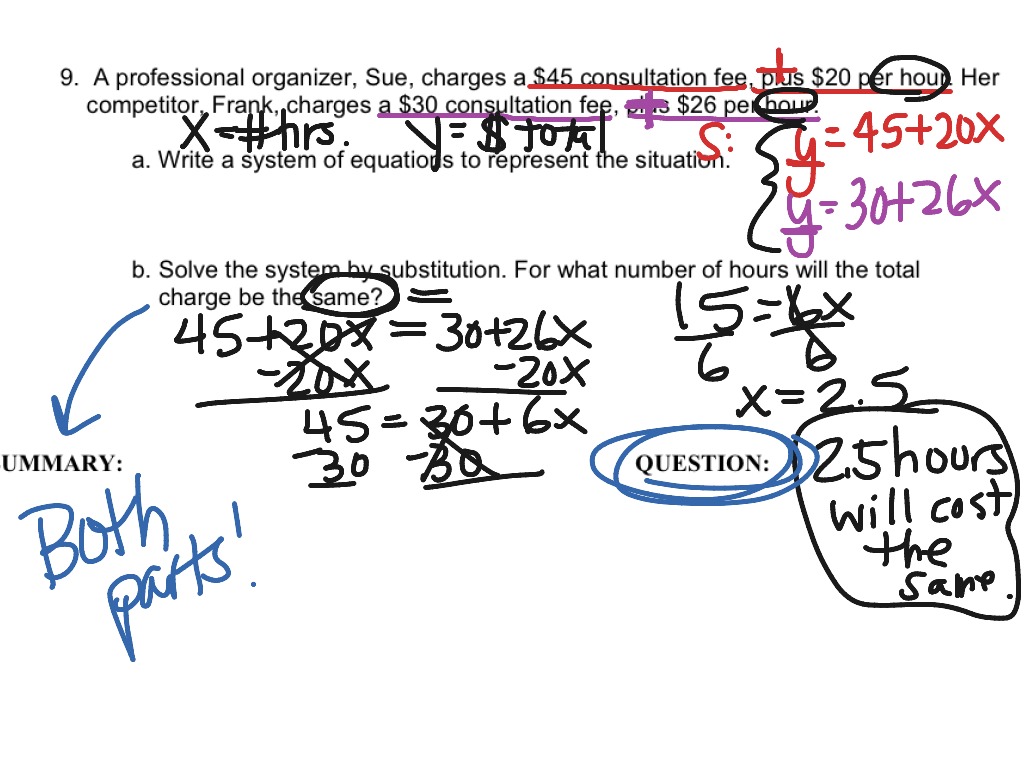 9. A professional organizer, Sue, charges a $45 consultation fee, plus $20 per hour. Her
+
competitor, Frank, charges a $30 consultation fee, plus $26 per hour.
+
X = # hrs. y = $ total
S: y = 45+20x
a. Write a system of equations to represent the situation.
y = 30+26x
b. Solve the system by substitution. For what number of hours will the total
charge be the same? =
45+20x = 30+26x
-20x -20x
45 = 30 + 6x
-30 -30
15 = 6x
6 6
x = 2.5
UMMARY: QUESTION:
Both
parts!
2.5 hours
will cost
the
same.